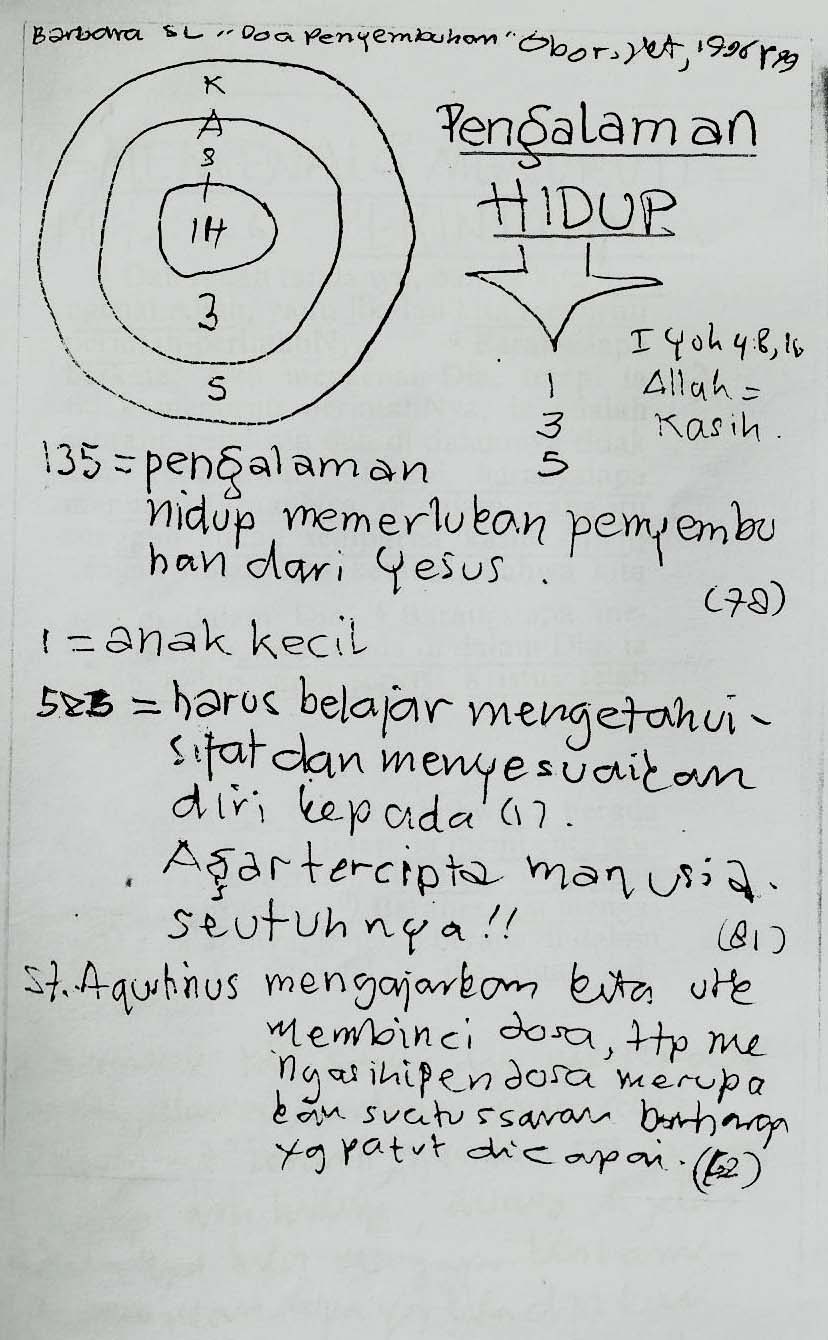 Barbara SL "Doa Penyembuhan" Obor, 1996
K
A
S
I
1H
3
5
Pengalaman
HIDUP
I Yoh 4:8, 16
Allah =
Kasih.
1
3
5
135 = pengalaman
hidup memerlukan penyembu
han dari Yesus.
(78)
1 = anak kecil
= harus belajar mengetahui
sifat dan menyesuaikan
diri kepada (1).
Agar tercipta manusia
seutuhnya!!
(81)
St. Agustinus mengajarkan kita utk
membinci dosa, ttp me
ngasihi pendosa merupa
kan suatu ssaran berharga
yg patut dicapai. (62)